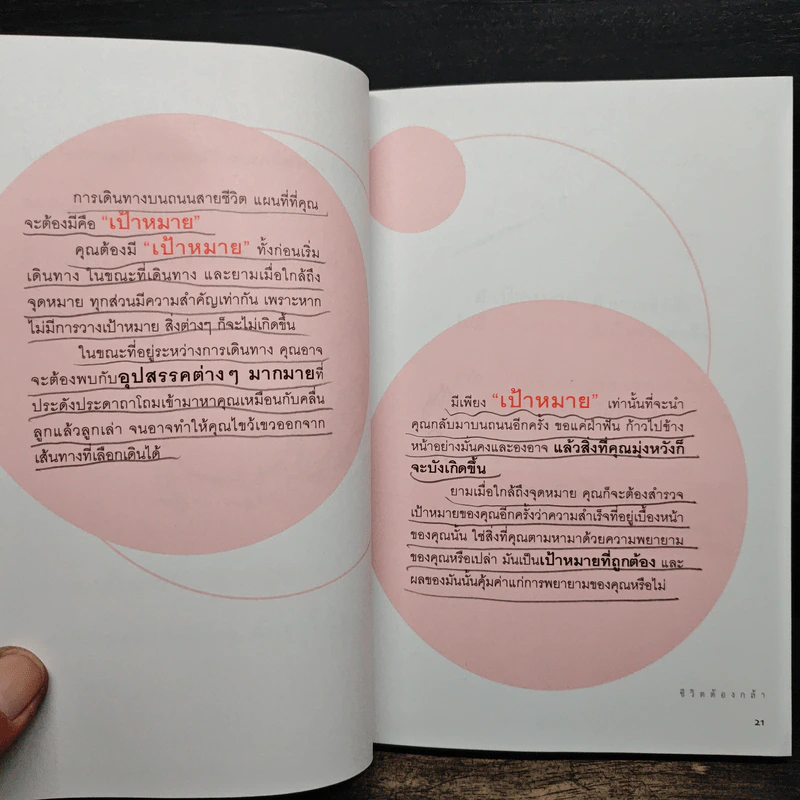 การเดินทางบนถนนสายชีวิต แผนที่ที่คุณ
จะต้องมีคือ “เป้าหมาย”
คุณต้องมี “เป้าหมาย” ทั้งก่อนเริ่ม
เดินทาง ในขณะที่เดินทาง และยามเมื่อใกล้ถึง
จุดหมาย ทุกส่วนมีความสำคัญเท่ากัน เพราะหาก
ไม่มีการวางเป้าหมาย สิ่งต่างๆ ก็จะไม่เกิดขึ้น
ในขณะที่อยู่ระหว่างการเดินทาง คุณอาจ
จะต้องพบกับอุปสรรคต่างๆ มากมายที่
ประดังประดาถาโถมเข้ามาหาคุณเหมือนกับคลื่น
ลูกแล้วลูกเล่า จนอาจทำให้คุณไขว้เขวออกจาก
เส้นทางที่เลือกเดินได้
มีเพียง “เป้าหมาย” เท่านั้นที่จะนำ
คุณกลับมาบนถนนอีกครั้ง ขอแค่ฝ่าฟัน ก้าวไปข้าง
หน้าอย่างมั่นคงและองอาจ แล้วสิ่งที่คุณมุ่งหวังก็
จะบังเกิดขึ้น
ยามเมื่อใกล้ถึงจุดหมาย คุณก็จะต้องสำรวจ
เป้าหมายของคุณอีกครั้งว่าความสำเร็จที่อยู่เบื้องหน้า
ของคุณนั้น ใช่สิ่งที่คุณตามหามาด้วยความพยายาม
ของคุณหรือเปล่า มันเป็นเป้าหมายที่ถูกต้อง และ
ผลของมันนั้นคุ้มค่าแก่การพยายามของคุณหรือไม่
ชีวิตต้องกล้า
21